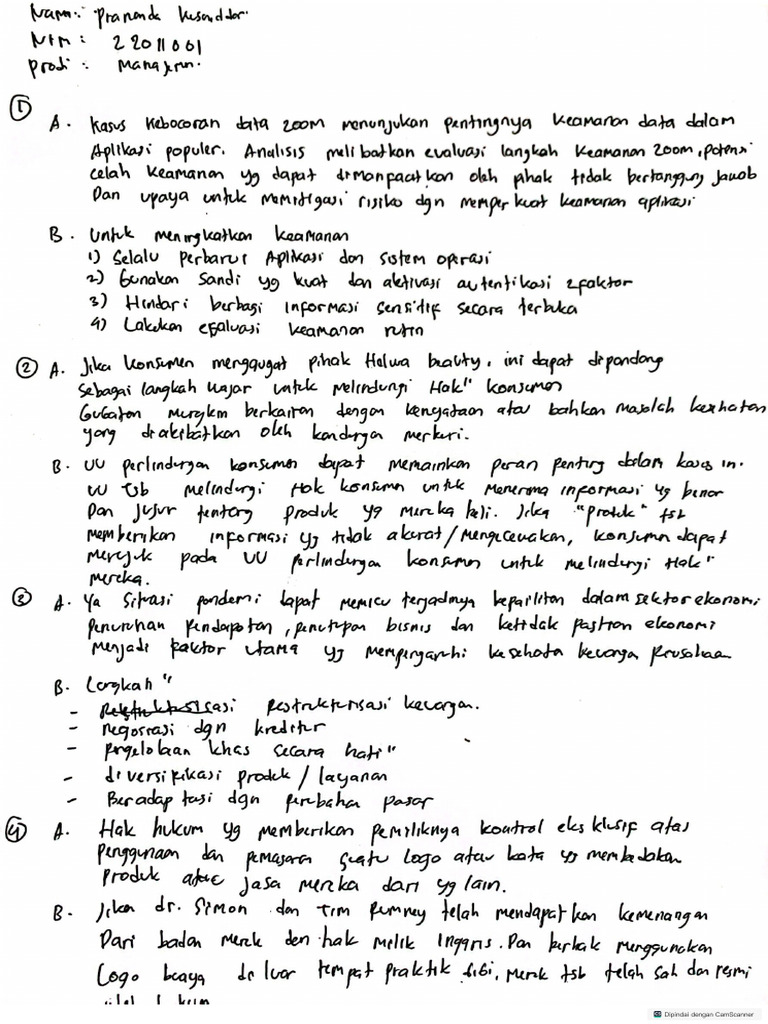 Nama: Prananda Kusandar.
NIM: 22011001
Prodi: Manajemen.
① A. Kasus Kebocoran data zoom menunjukan pentingnya Keamanan data dalam
Aplikasi populer. Analisis melibatkan evaluasi langkah keamanan zoom, potensi
celah keamanan yg dapat dimanpaatkan oleh pihak tidak bertanggung jawab
Dan upaya untuk memitigasi risiko dgn memperkuat keamanan aplikasi
B. Untuk meningkatkan keamanan
1) Selalu Perbarui Aplikasi dan sistem operasi
2) Gunakan Sandi yg kuat dan aktivasi autentikasi 2faktor
3) Hindari berbagi informasi sensitif secara terbuka
4) Lakukan evaluasi keamanan rutin
② A. Jika konsumen menggugat pihak Halwa beauty, ini dapat dipandang
sebagai langkah wajar untuk melindungi Hak" konsumen
Gugatan mungkin berkaitan dengan kenyataan atau bahkan masalah kesehatan
yang diakibatkan oleh kandungan merkuri.
B. UU perlindungan konsumen dapat memainkan peran penting dalam kasus ini.
UU tsb melindungi Hak konsumen untuk menerima informasi yg benar
Dan jujur tentang produk yg mereka beli. Jika "produk" tsb
memberikan informasi yg tidak akurat/mengecewakan, konsumen dapat
merujuk pada UU perlindungan konsumen untuk melindungi Hak"
mereka.
③ A. Ya situasi pandemi dapat memicu terjadinya kepailitan dalam sektor ekonomi
Penurunan Pendapatan, penutupan bisnis dan ketidak pastian ekonomi
menjadi faktor utama yg mempengaruhi kesehata keuanga Perusahaan
B. Langkah"
- Restrukturisasi keuangan.
- negosiasi dgn kreditur
- pengelolaan khas secara hati"
- diversifikasi produk / layanan
- Beradaptasi dgn perubahan pasar
④ A. Hak hukum yg memberikan pemiliknya kontrol eksklusif atas
penggunaan dan pemasaran suatu logo atau kata yg membedakan
produk atau jasa mereka dari yg lain.
B. Jika dr. Simon dan Tim Rumney telah mendapatkan kemenangan
Dari badan merek den hak melik Inggris. Dan berhak menggunakan
Logo buaya di luar tempat praktik gigi, merek tsb telah sah dan resmi
Dipindai dengan CamScanner